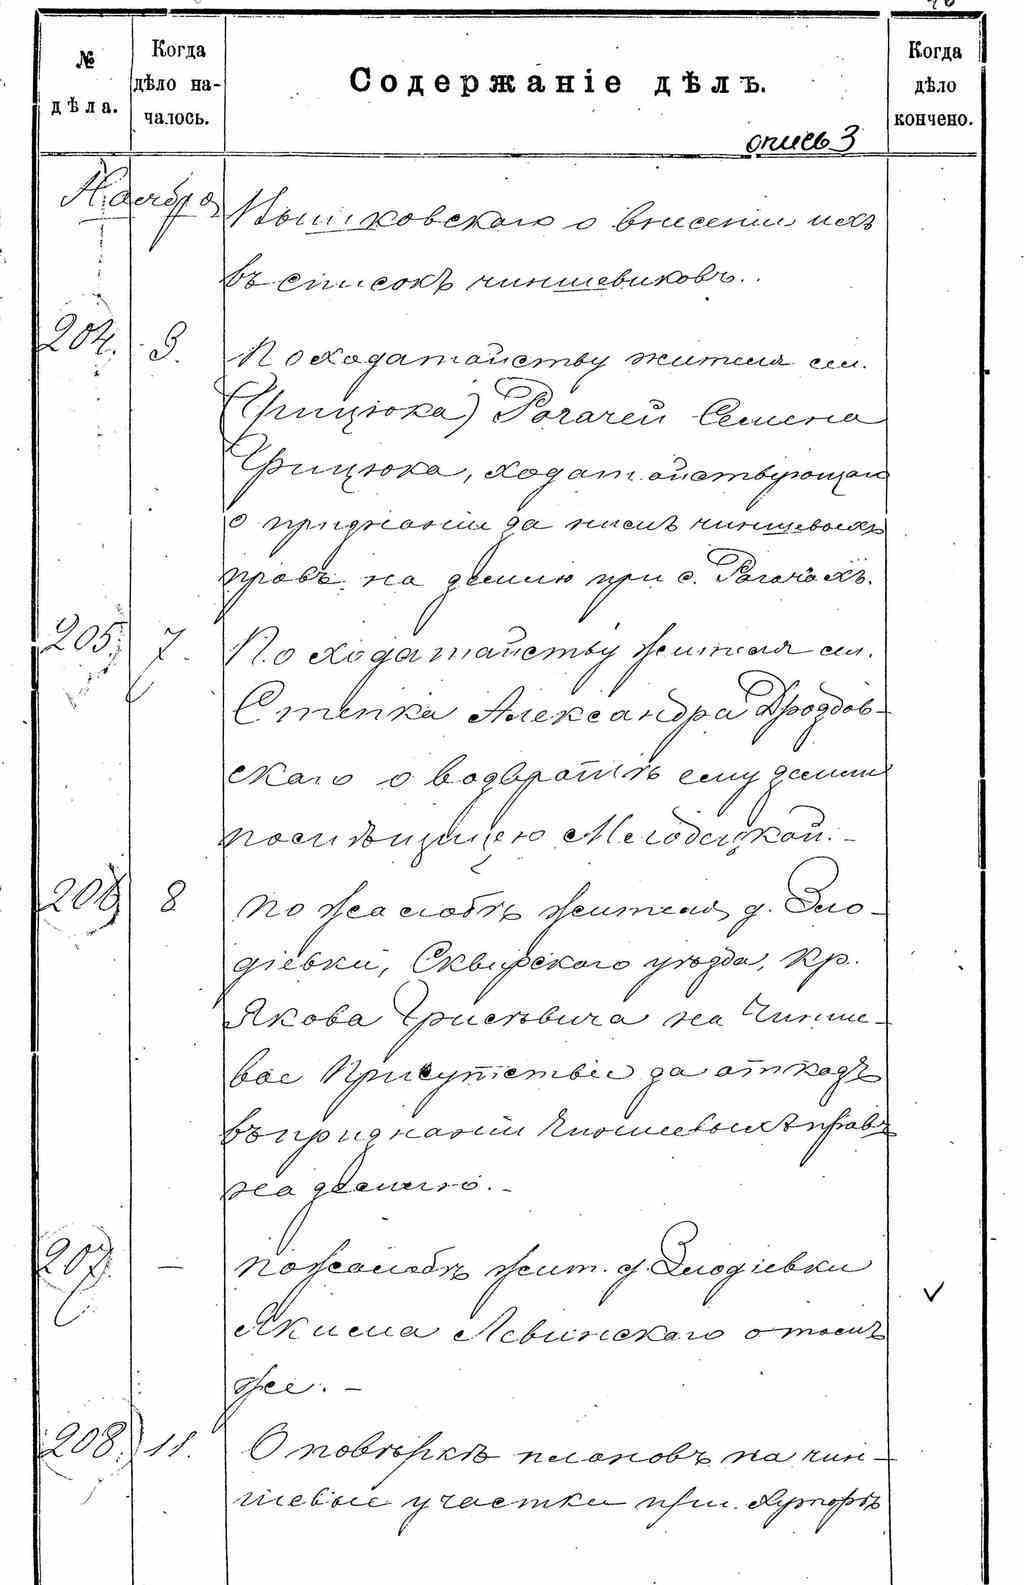 № дѣла.
Когда дѣло началось.
Содержаніе дѣлъ.
Когда дѣло кончено.
опись 3
Ноября
Вышковскаго о внесеніи ихъ
въ списокъ чиншевиковъ.
204. 3. По ходатайству жителя сел.
(Грицюка) Рогачей Семена
Грицюка, ходатайствующаго
о признаніи за нимъ чиншевыхъ
правъ на землю при с. Рогачахъ.
205. 7. По ходатайству жителя сел.
Степка Александра Дроздов-
скаго о возвратѣ ему земли
помѣщицею Мелодецкой. -
206 8 По жалобѣ жителя д. Зло-
діевки, Сквирскаго уѣзда, кр.
Якова Грисевича на Чинше-
вое Присутствіе за отказъ
въ признаніи Чиншевыхъ правъ
на землю. -
207. — По жалобѣ жит. д. Злодіевки
Якима Левинскаго о томъ
же. -
208. 11. О повѣркѣ плановъ на чин-
шевые участки при Хуторѣ